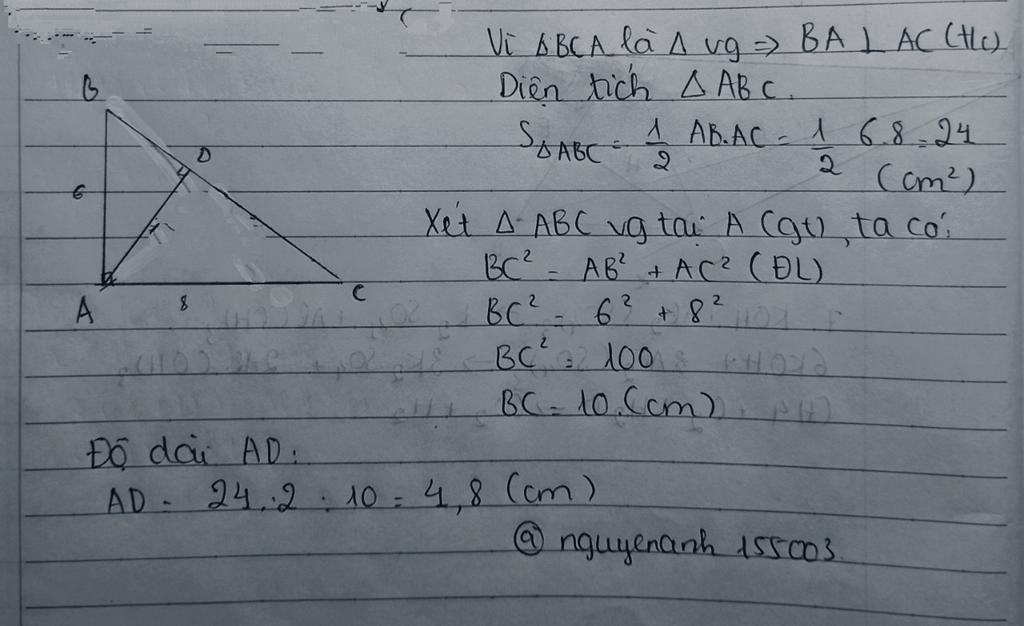 Vì ΔBCA là Δ vg => BA ⊥ AC (t/c)
Diện tích Δ ABC.
S ΔABC = 1/2 AB.AC = 1/2 6.8 = 24
(cm²)
B
D
6
A
8
C
Xét Δ ABC vg tại A (gt), ta có:
BC² = AB² + AC² (ĐL)
BC² = 6² + 8²
BC² = 100
BC = 10 (cm)
Độ dài AD:
AD = 24.2 : 10 = 4,8 (cm)
@ nguyenanh 155003